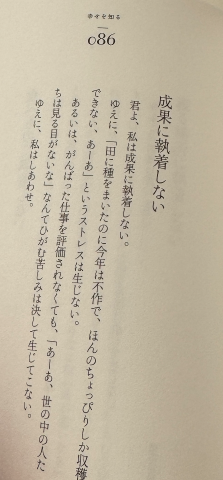 幸せを知る
086
成果に執着しない
君よ、私は成果に執着しない。
ゆえに、「田に種をまいたのに今年は不作で、ほんのちょっぴりしか収穫
できない、あーあ」というストレスは生じない。
あるいは、がんばった仕事を評価されなくても、「あーあ、世の中の人た
ちは見る目がないな」なんてひがむ苦しみは決して生じてこない。
ゆえに、私はしあわせ。